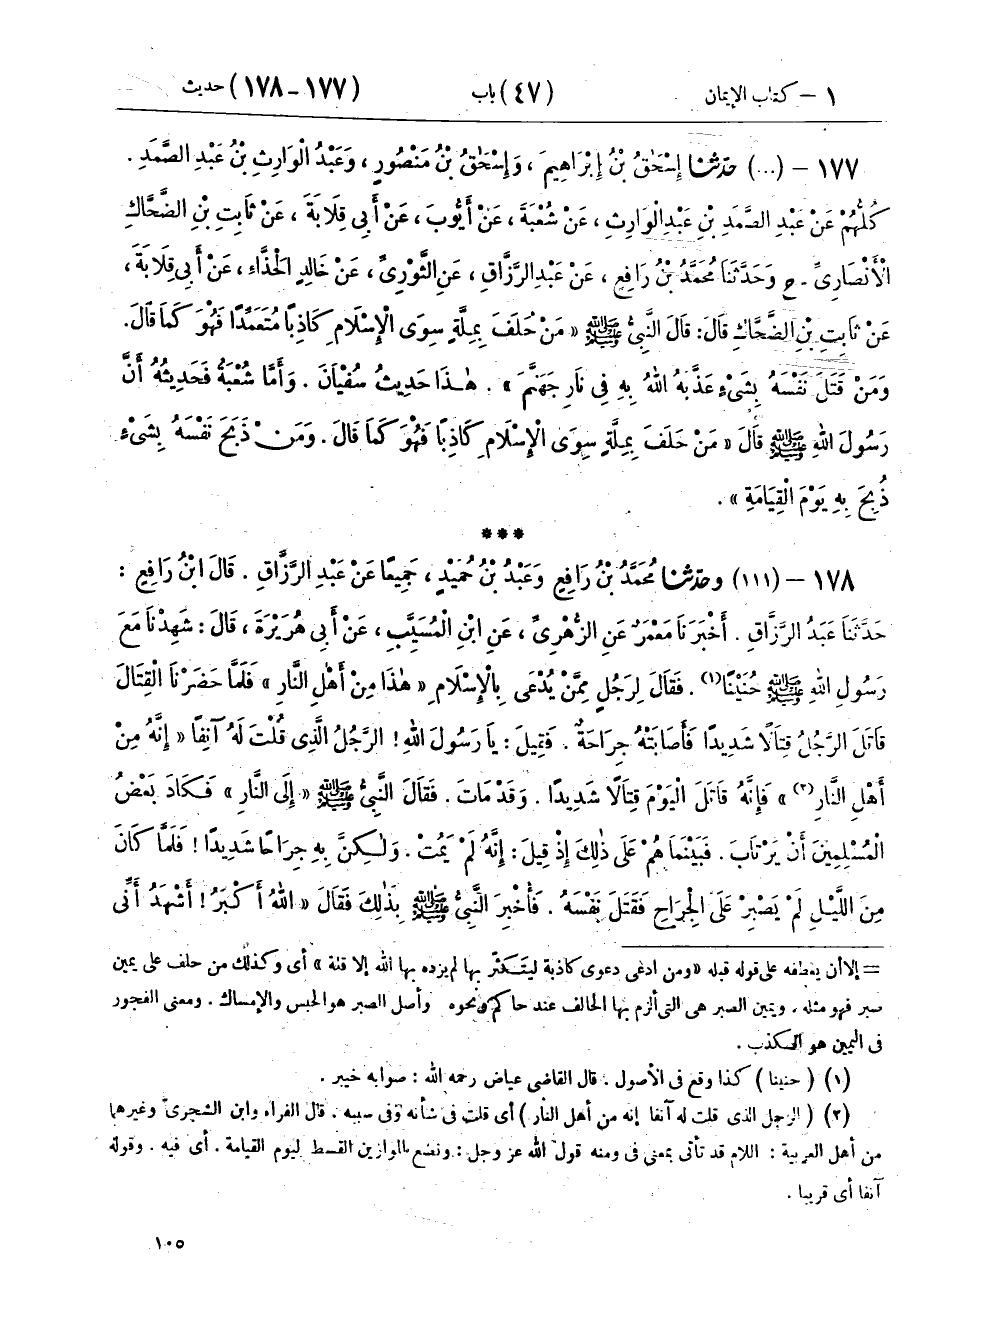 ١ – كتاب الإيمان (٤٧) باب (١٧٧-١٧٨) حديث
١٧٧ – (...) حدّثنا إِسْحَٰقُ بْنُ إِبْرَاهِيمَ ، وَإِسْحَٰقُ بْنُ مَنْصُورٍ ، وَعَبْدُ الْوَارِثِ بْنُ عَبْدِ الصَّمَدِ .
كُلُّهُمْ عَنْ عَبْدِ الصَّمَدِ بْنِ عَبْدِ الْوَارِثِ ، عَنْ شُعْبَةَ ، عَنْ أَيُّوبَ ، عَنْ أَبِي قِلَابَةَ ، عَنْ ثَابِتِ بْنِ الضَّحَّاكِ
الْأَنْصَارِىِّ . ح وَحَدَّثَنَا مُحَمَّدُ بْنُ رَافِعٍ ، عَنْ عَبْدِ الرَّزَّاقِ ، عَنِ الثَّوْرِىِّ ، عَنْ خَالِدٍ الْحَذَّاءِ ، عَنْ أَبِي قِلَابَةَ ،
عَنْ ثَابِتِ بْنِ الضَّحَّاكِ قَالَ: قَالَ النَّبِيُّ ﷺ « مَنْ حَلَفَ بِمِلَّةٍ سِوَى الْإِسْلَامِ كَاذِبًا مُتَعَمِّدًا فَهُوَ كَمَا قَالَ.
وَمَنْ قَتَلَ نَفْسَهُ بِشَىْءٍ عَذَّبَهُ اللهُ بِهِ فِى نَارِ جَهَنَّمَ » . هَٰذَا حَدِيثُ سُفْيَانَ . وَأَمَّا شُعْبَةُ فَحَدِيثُهُ أَنَّ
رَسُولَ اللهِ ﷺ قَالَ « مَنْ حَلَفَ بِمِلَّةٍ سِوَى الْإِسْلَامِ كَاذِبًا فَهُوَ كَمَا قَالَ . وَمَنْ ذَبَحَ نَفْسَهُ بِشَىْءٍ
ذُبِحَ بِهِ يَوْمَ الْقِيَامَةِ » .
***
١٧٨ – (١١١) وحدّثنا مُحَمَّدُ بْنُ رَافِعٍ وَعَبْدُ بْنُ حُمَيْدٍ ، جَمِيعًا عَنْ عَبْدِ الرَّزَّاقِ . قَالَ ابْنُ رَافِعٍ :
حَدَّثَنَا عَبْدُ الرَّزَّاقِ . أَخْبَرَنَا مَعْمَرٌ عَنِ الزُّهْرِىِّ ، عَنِ ابْنِ الْمُسَيَّبِ ، عَنْ أَبِي هُرَيْرَةَ ، قَالَ : شَهِدْنَا مَعَ
رَسُولِ اللهِ ﷺ حُنَيْنًا(١) . فَقَالَ لِرَجُلٍ مِمَّنْ يُدْعَى بِالْإِسْلَامِ « هَٰذَا مِنْ أَهْلِ النَّارِ » فَلَمَّا حَضَرْنَا الْقِتَالَ
قَاتَلَ الرَّجُلُ قِتَالًا شَدِيدًا فَأَصَابَتْهُ جِرَاحَةٌ . فَقِيلَ : يَا رَسُولَ اللهِ ! الرَّجُلُ الَّذِى قُلْتَ لَهُ آنِفًا « إِنَّهُ مِنْ
أَهْلِ النَّارِ(٢) » فَإِنَّهُ قَاتَلَ الْيَوْمَ قِتَالًا شَدِيدًا . وَقَدْ مَاتَ . فَقَالَ النَّبِيُّ ﷺ « إِلَى النَّارِ » فَكَادَ بَعْضُ
الْمُسْلِمِينَ أَنْ يَرْتَابَ . فَبَيْنَمَا هُمْ عَلَى ذَٰلِكَ إِذْ قِيلَ : إِنَّهُ لَمْ يَمُتْ . وَلَٰكِنَّ بِهِ جِرَاحًا شَدِيدًا ! فَلَمَّا كَانَ
مِنَ اللَّيْلِ لَمْ يَصْبِرْ عَلَى الْجِرَاحِ فَقَتَلَ نَفْسَهُ . فَأُخْبِرَ النَّبِيُّ ﷺ بِذَٰلِكَ فَقَالَ « اللهُ أَكْبَرُ ! أَشْهَدُ أَنِّى
= إلا أن يعطفه على قوله قبله «ومن ادعى دعوى كاذبة ليتكثر بها لم يزده بها الله إلا قلة » أى وكذلك من حلف على يمين
صبر فهو مثله . ويمين الصبر هى التى ألزم بها الحالف عند حاكم ونحوه وأصل الصبر هو الحبس والإمساك . ومعنى الفجور
فى اليمين هو الكذب .
(١) ( حنينا ) كذا وقع فى الأصول . قال القاضى عياض رحمه الله : صوابه خيبر .
(٢) ( الرجل الذى قلت له آنفا إنه من أهل النار ) أى قلت فى شأنه وفى سببه . قال الفراء وابن الشجرى وغيرهما
من أهل العربية : اللام قد تأتى بمعنى فى ومنه قول الله عز وجل : ونضع الموازين القسط ليوم القيامة . أى فيه . وقوله
آنفا أى قريبا .
١٠٥